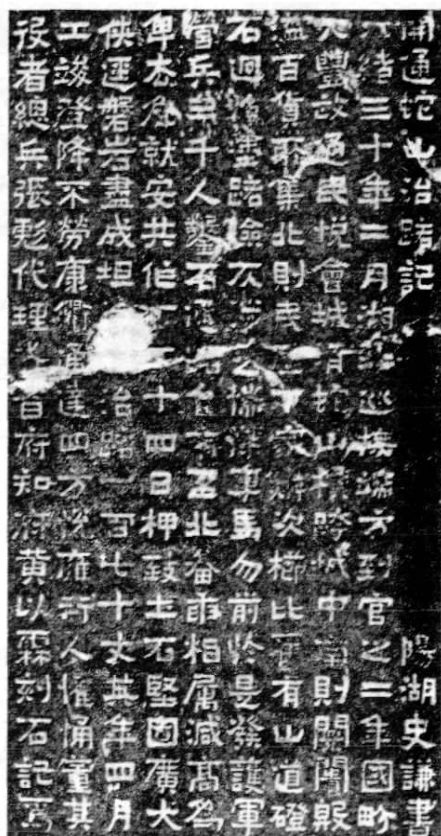 開通蛇山治路記 陽湖史謙書
光緒三十年二月湖北巡撫端方到官之二年國
大豐政通民悅會城有蛇山橫跨城中南則闤闠殷
溢百貨所集北則民千家鱗次櫛比舊有山道磴
石迴路險仄步車馬勿前於是發護軍
營兵千人鑿石至北畚臿相屬減高為
卑去危就安共作十四日椑致土石堅固廣大
俠逕磐岩盡成坦治路一百七十丈其年四月
工竣登降不勞康衢通達四方悅雍行人懽涌董其
役者總兵張彪代理武昌府知府黃以霖刻石記焉